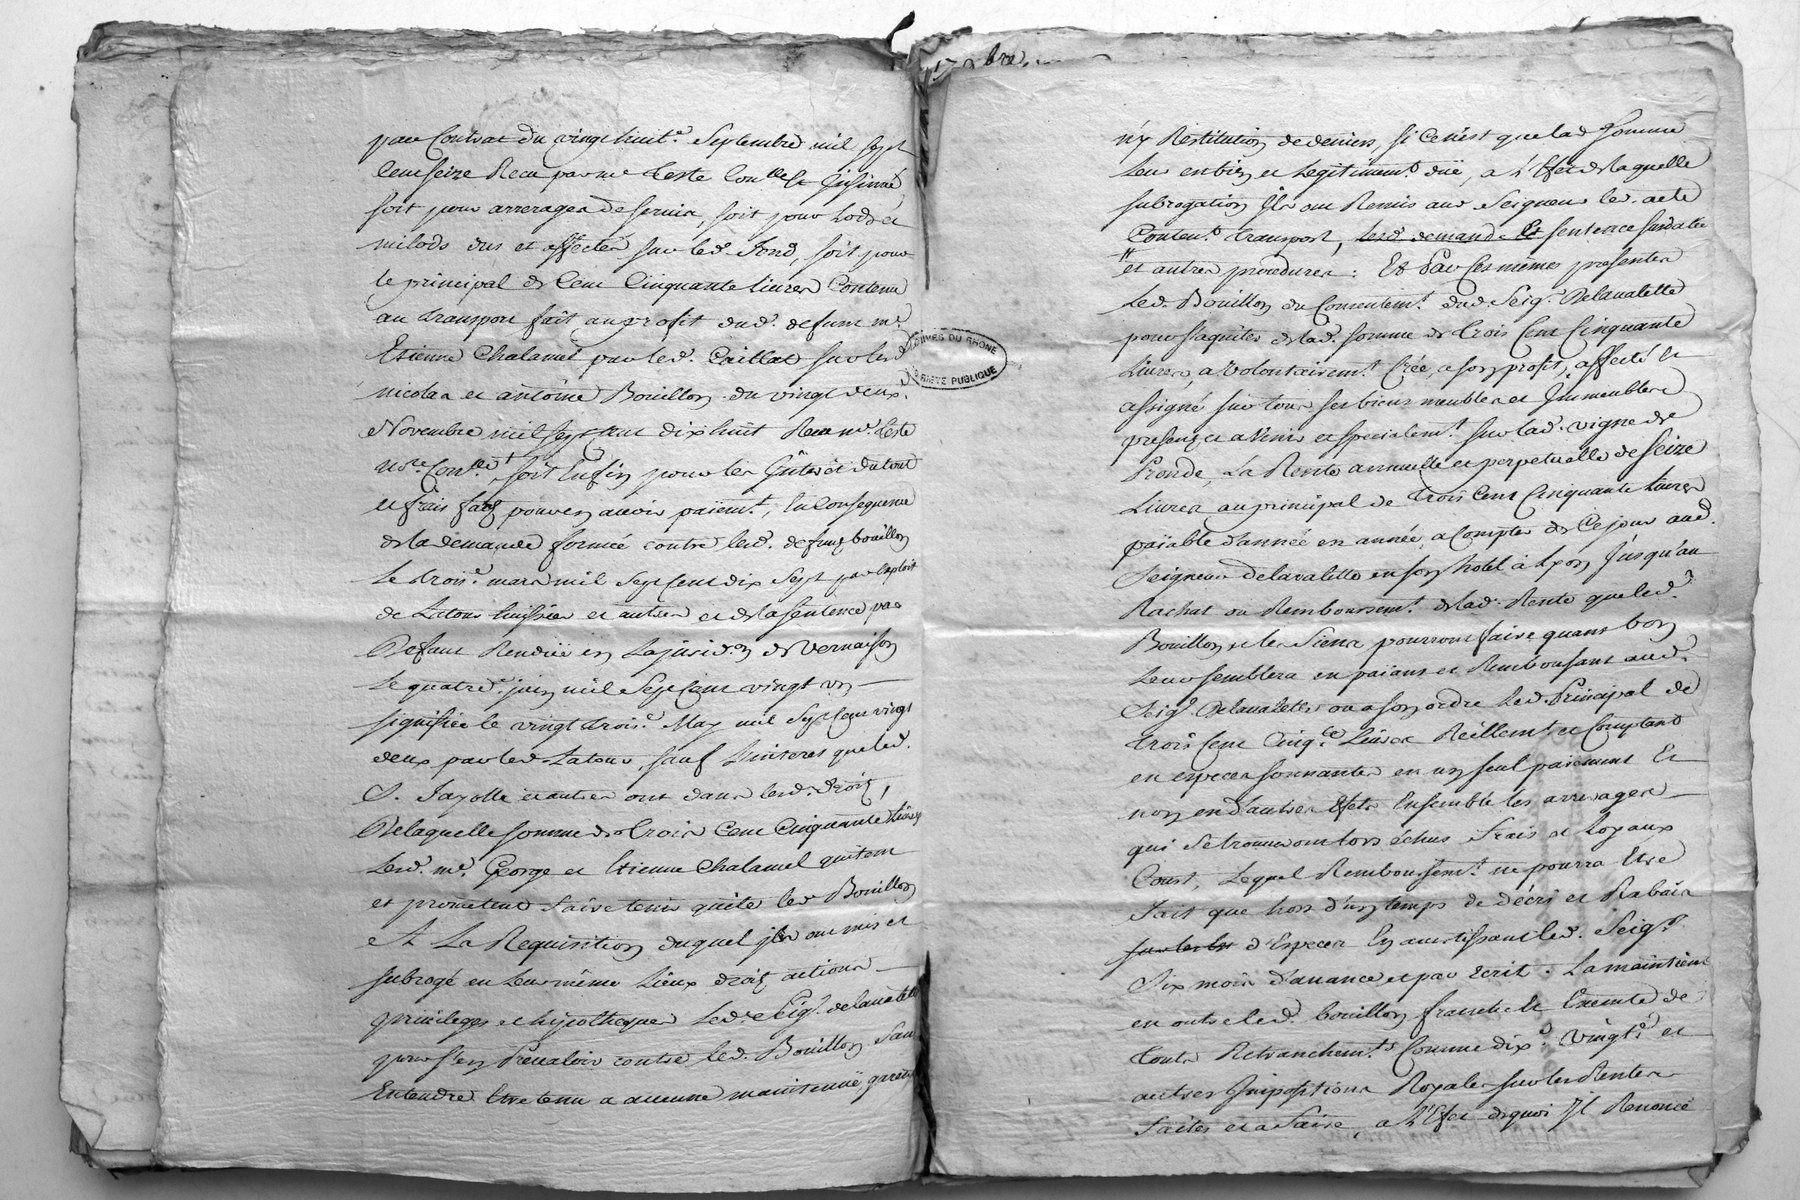 par Contrat du vingt huit.e Septembre mil sept
Cent seize Receu par me teste Con.lle et Insinué,
soit pour arrerages de servis, soit pour Lods et
milods dus et affectés sur led. fond, soit pour
le principal de Cent Cinquante livres Contenu
au transport fait au profit dud. defunt me.
Etienne Chalamel par led. Caillat sur les d
nicolas et antoine Bouillon du vingt deux.
Novembre mil sept cent dix huit Receu me. teste
soit Enfin pour les Intérêt du tout
et frais faits pouvez avoir païem.t, En Consequence
de la demande formée contre led. defunt bouillon
Le trois.e mars mil Sept Cent dix Sept par Exploit
de Latour huissier et autres et de la sentence par
Defaut Rendüe en La jurisd.on de Vernaison
Le quatre.e juin mil Sept Cent vingt un
signifiée le vingt trois.e May mil Sept Cent vingt
deux par led. Latour, sauf L'interest que led.
S. Jayolle et autres ont dans lesd. droits,
De laquelle somme de trois Cent Cinquante Livres
Lesd. me. George et Etienne Chalamel quitent
et prometent faire tenir quite led Bouillon
A La Requisition duquel ils ont mis et
subrogé en Leur même Lieux droits actions
privileges et hypotheques Led. Seig.r delavalette
pour s'en Prevaloir contre led. Bouillon San
Entendre Etre tenu a aucune maintenüe, garentie
17 bre
n'y Restitution de deniers, si Ce n'est que lad. Somme
Leur est bien et Legitimem.t düe, a L'Effet de laquelle
subrogation Ils ont Remis aud Seigneur led. acte
Conten.t transport, lesd. demande Et sentence surdatée
et autres procedures : Et Par Ces mêmes presentes
Led. Bouillon du Consentem.t dud Seig.r Delavalette
pour s'aquiter de lad. somme de trois Cent Cinquante
Livres, a Volontairem.t Créé, a son profit, affecté et
assigné sur tous ses biens meubles et Immeubles
presents et a Venir et specialem.t sur lad. vigne de
Ronde, La Rente annuelle et perpetuelle de Seize
Livres au principal de trois Cent Cinquante Livres
païable d'année en année, a Compter de Ce jour aud.
Seigneur delavalette en son hotel à Lyon Jusqu'au
Rachat ou Remboursem.t de lad. Rente que led.
Bouillon et les Siens pourront faire quant bon
Leur semblera en païant et Remboursant aud.
Seig.r Delavalette ou a son ordre led. Principal de
trois Cent Cinq.te Livres Réellem.t et Comptant
en especes sonnantes en un seul paiement Et
non en d'autres Effets Ensemble les arrerages
qui se trouveront lors échus frais et Loyaux
Coust, Lequel Remboursem.t ne pourra Etre
fait que hors d'un temps de décri et Rabais
d'Especes En avertissant led. Seig.r
Six mois d'avance et par écrit. La maintient
en outre led. bouillon franche Et Exempte de
toute Retranchem.ts Comme dix.e Vingt.e et
autres Impositions Royale sur les Rentes
faites et a faire, a L'Effet de quoi Il Renonce
ARCHIVES DU RHONE
PROPRIETE PUBLIQUE